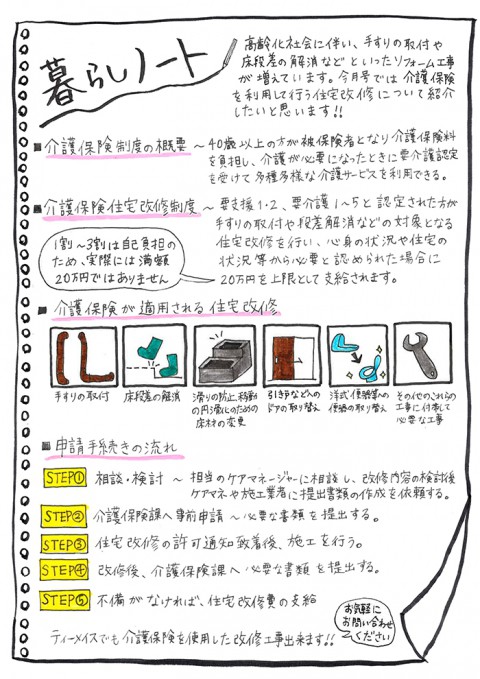 暮らしノート
高齢化社会に伴い、手すりの取付や
床段差の解消などといったリフォーム工事
が増えています。今月号では介護保険
を利用して行う住宅改修について紹介
したいと思います!!
■介護保険制度の概要 ～ 40歳以上の方が被保険者となり介護保険料
を負担し、介護が必要になったときに要介護認定
を受けて多種多様な介護サービスを利用できる。
■介護保険住宅改修制度 ～ 要支援1・2、要介護1～5と認定された方が
手すりの取付や段差解消などの対象となる
住宅改修を行い、心身の状況や住宅の
状況等から必要と認められた場合に
20万円を上限として支給されます。
1割～3割は自己負担の
ため、実際には満額
20万円ではありません
■介護保険が適用される住宅改修
手すりの取付
床段差の解消
滑りの防止、移動
の円滑化のための
床材の変更
引き戸などへの
ドアの取り替え
洋式便器等への
便器の取り替え
その他のこれらの
工事に付帯して
必要な工事
■申請手続きの流れ
STEP① 相談・検討 ～ 担当のケアマネージャーに相談し、改修内容の検討後
ケアマネや施工業者に提出書類の作成を依頼する。
STEP② 介護保険課へ事前申請 ～ 必要な書類を提出する。
STEP③ 住宅改修の許可通知致着後、施工を行う。
STEP④ 改修後、介護保険課へ必要な書類を提出する。
STEP⑤ 不備がなければ、住宅改修費の支給
お気軽に
お問い合わせ
ください
ティーメイスでも介護保険を使用した改修工事出来ます!!